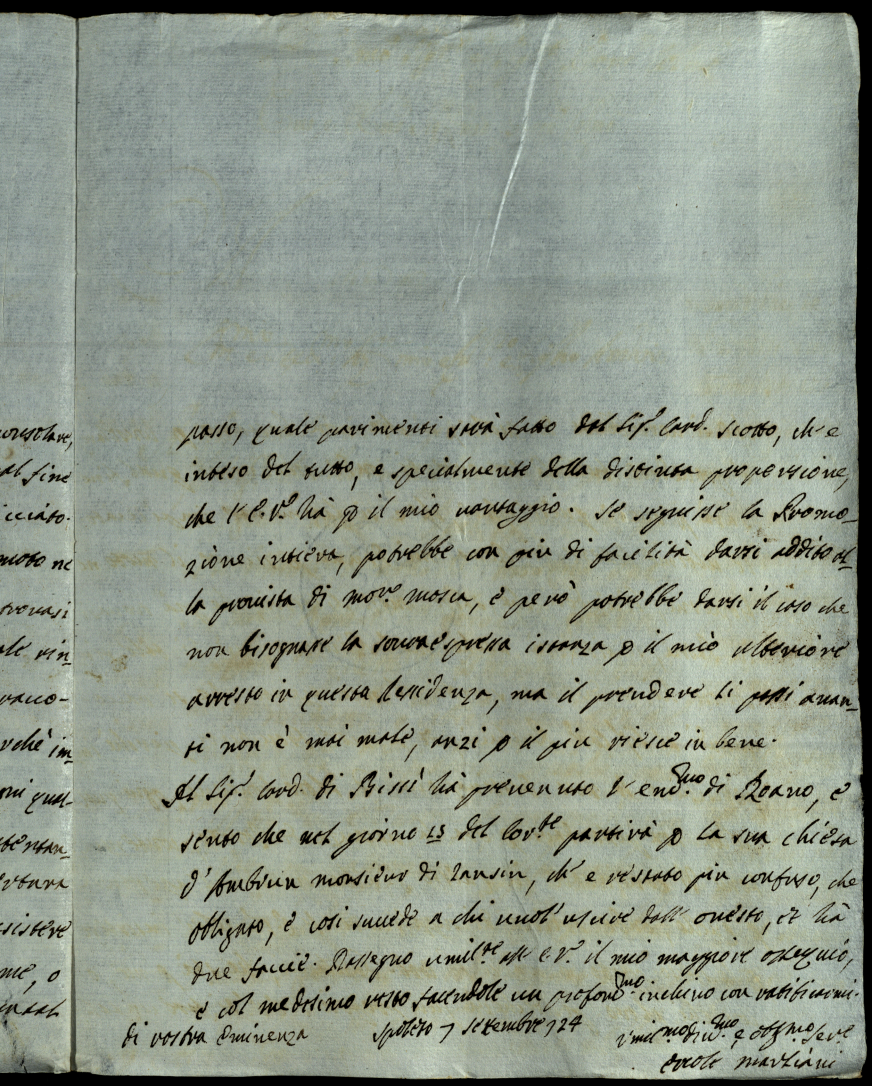 consolare,
al fine
icciato.
moto ne
trovasi
ale rin=
vacco-
rchè im=
oni qual=
tentan=
ertura
sistere
me, o
passo, quale parimenti sarà fatto dal Sig.r Card. Scotto, ch'è
inteso del tutto, e specialmente della distinta propensione,
che l'E.V.a hà p il mio vantaggio. Se seguisse la Promo=
zione intiera, potrebbe con piu di facilità darsi addito al=
la provista di Mon.r Mosca, e però potrebbe darsi il caso che
non bisognasse la sovraespressa istanza p il mio ulteriore
arresto in questa Residenza, ma il prendere li passi avan=
ti non è mai male, anzi p il piu riesce in bene.
Il Sig.r Card. di Bissì hà prevenuto l'em.mo di Roano, e
sento che nel giorno 15 del Corr.te partirà p la sua chiesa
d'Ambrun monsieur di Tansin, ch'e restato piu confuso, che
obligato, e cosi succede a chi vuol uscire dall'onesto, et hà
due faccie. Rassegno umilte all'E.V.a il mio maggiore ossequio,
e col medesimo resto facendole un profond.mo inchino con ratificarmi.
di Vostra Eminenza Spoleto 7 settembre 724
Umil.mo div.mo, e oblig.mo serv.e
Ercole Marliani